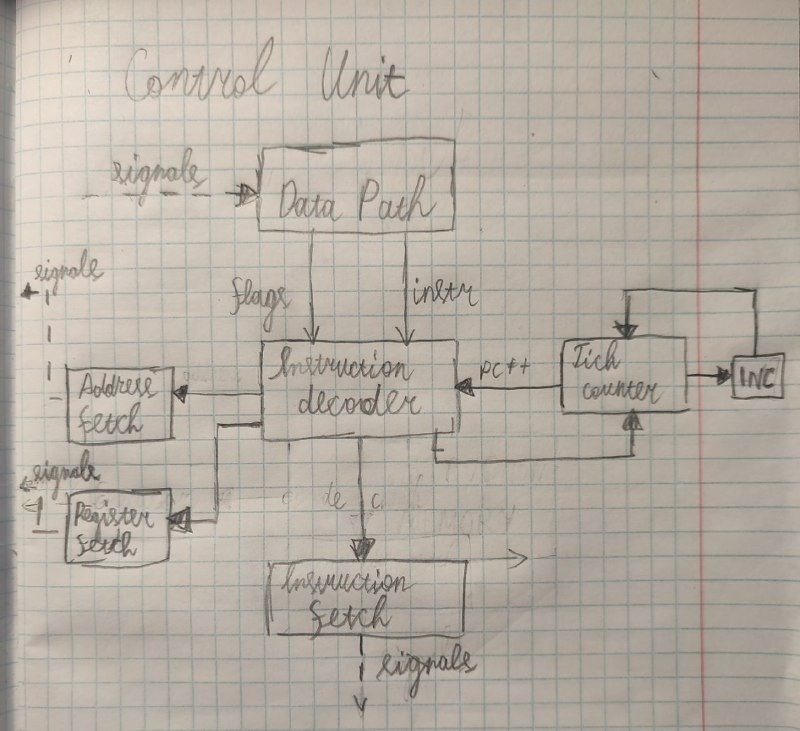 Control Unit
signals
Data Path
signals
flags
instr
Instruction
decoder
pc++
Tick
counter
INC
Address
fetch
signals
Register
fetch
de c
Instruction
fetch
signals